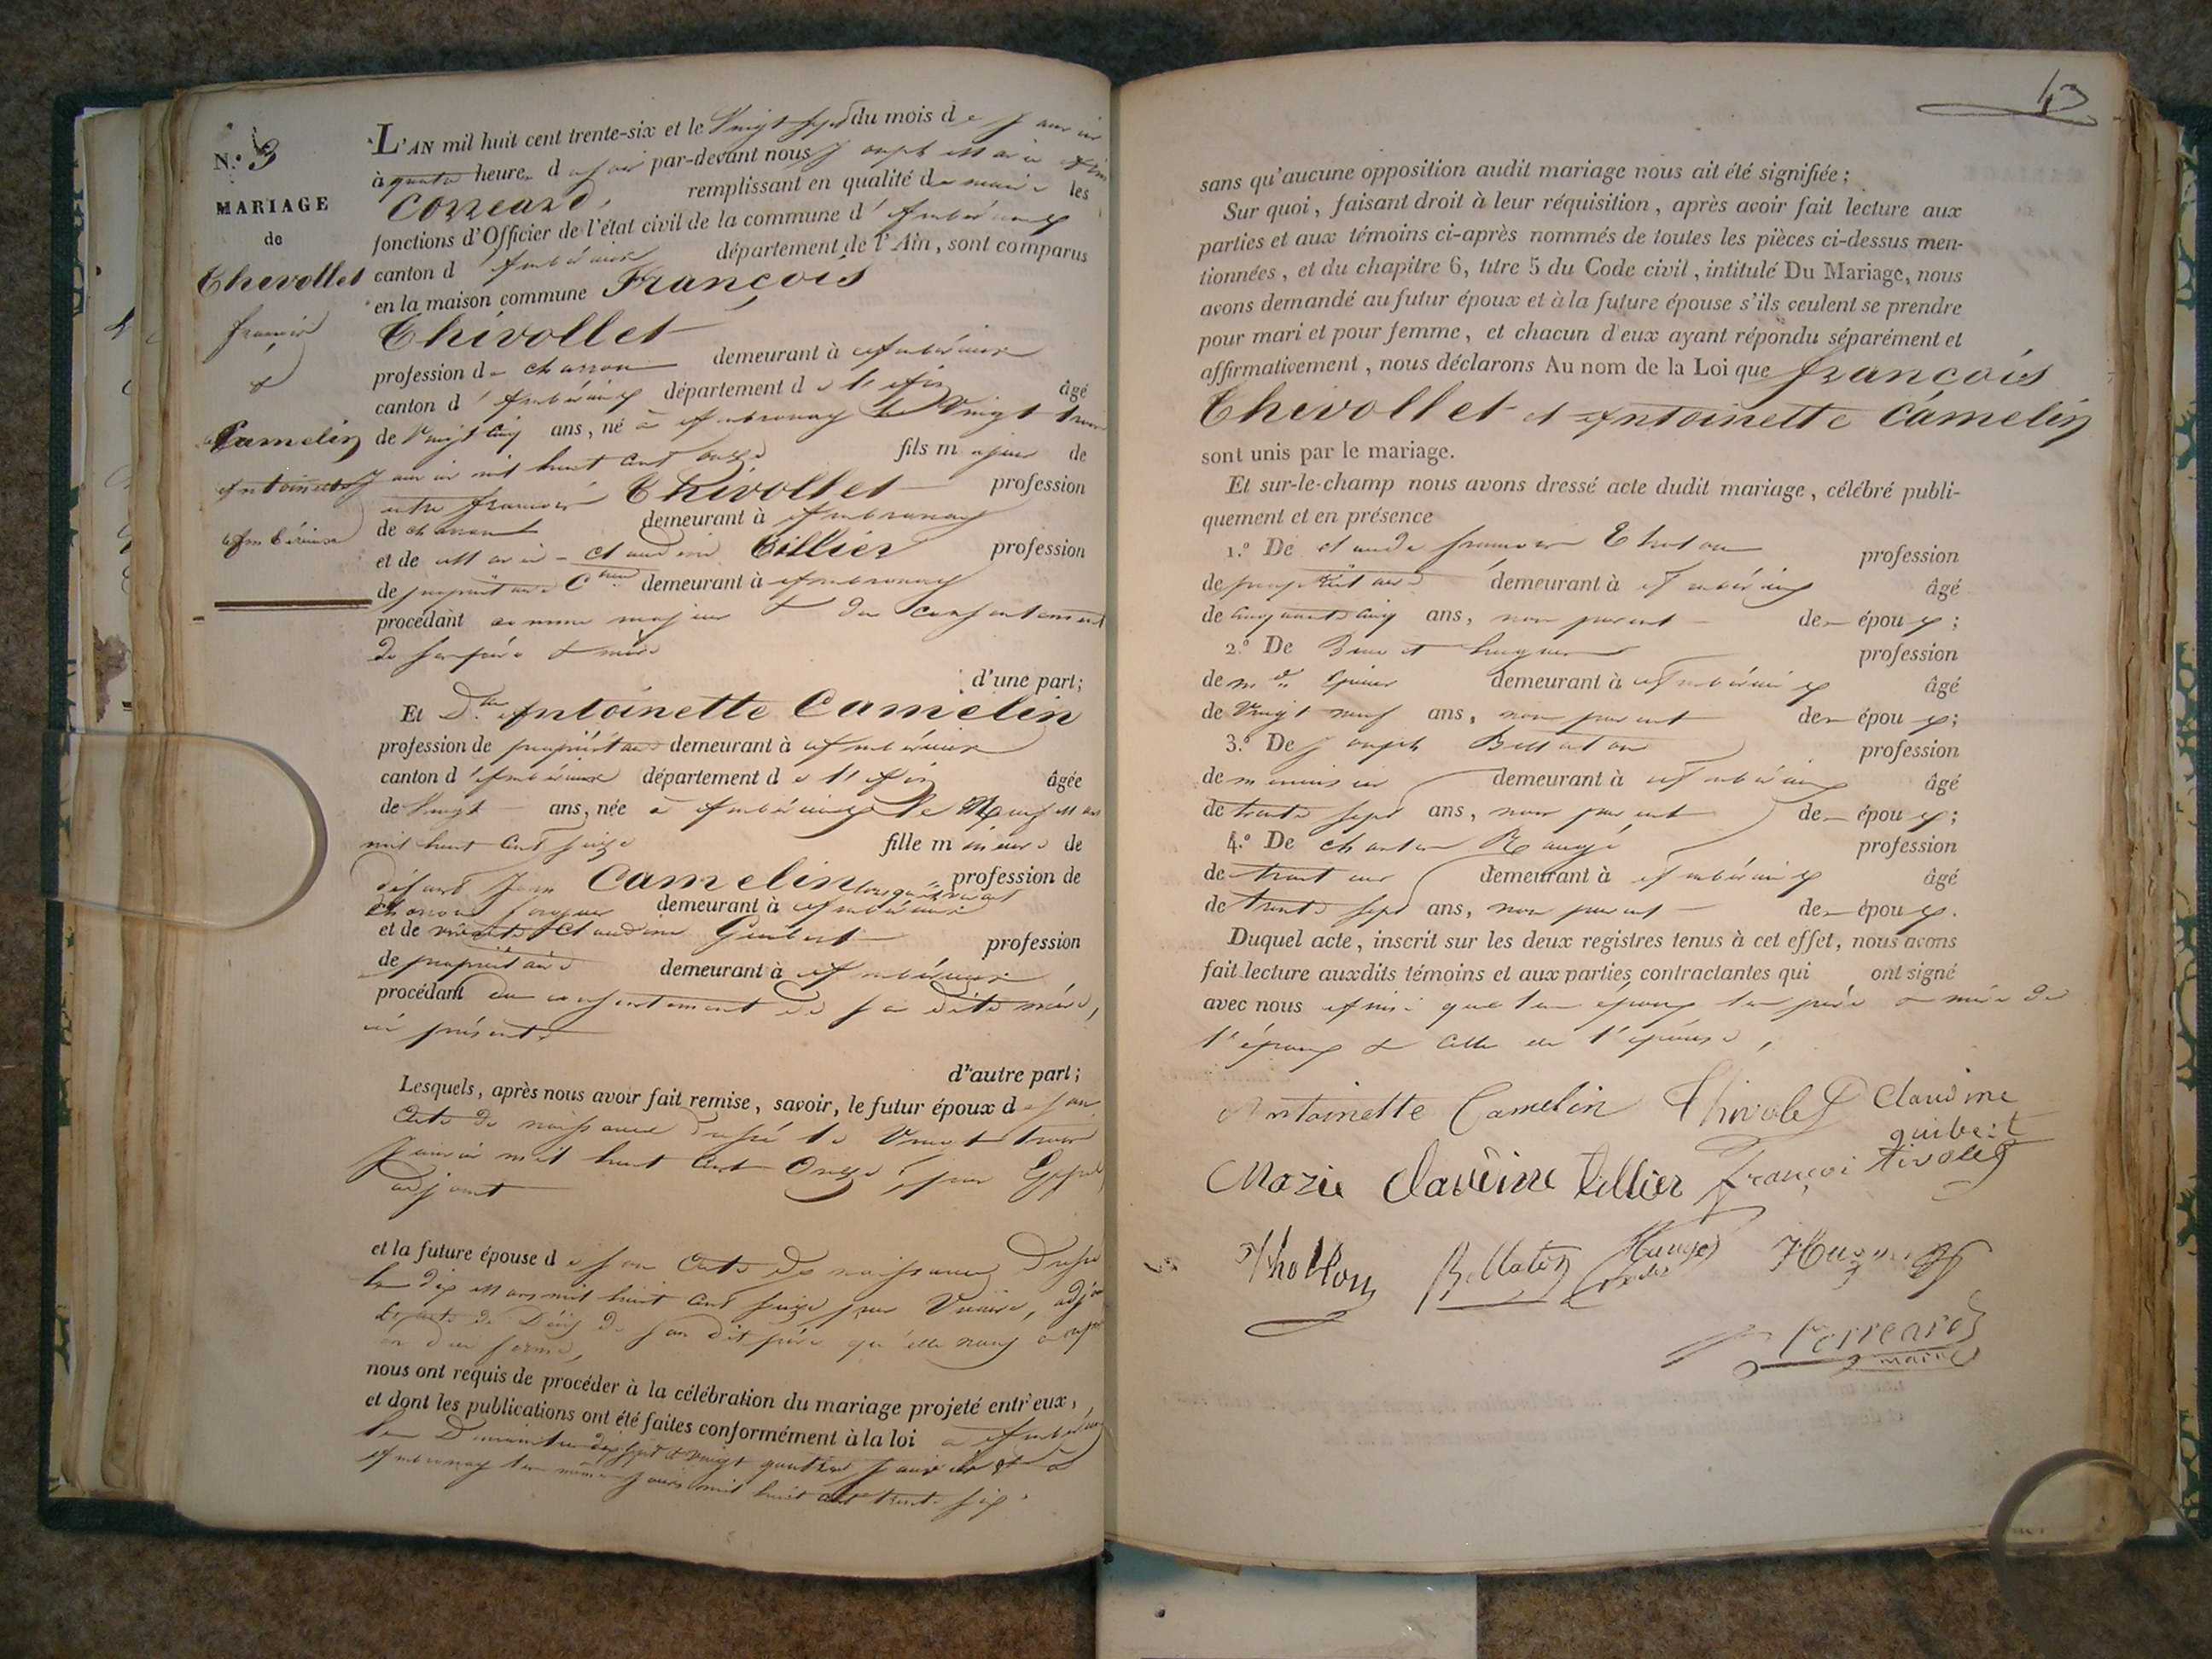 N.º 3
MARIAGE
de
Chevollet
françois
&
Camelin
Antoinette
Ambérieux
L'AN mil huit cent trente-six et le Vingt sept du mois de Janvier
à quatre heures du soir par-devant nous Joseph Marie
Correard, remplissant en qualité de maire les
fonctions d'Officier de l'état civil de la commune d'Ambérieux
canton d'Ambérieux département de l'Ain, sont comparus
en la maison commune François
Chivollet
profession de charron demeurant à Ambérieux
canton d'Ambérieux département de l'Ain âgé
de Vingt cinq ans, né à Ambronay le Vingt trois
Janvier mil huit cent onze fils majeur de
autre françois Chivollet profession
de charron demeurant à Ambronay
et de Marie-Claudine Tillier profession
de propriétaire demeurant à Ambronay
procédant comme majeur & du consentement
de ses père & mère
d'une part;
Et D.lle Antoinette Camelin
profession de propriétaire demeurant à Ambérieux
canton d'Ambérieux département de l'Ain âgée
de Vingt ans, née à Ambérieux le Neuf Mars
mil huit cent seize fille mineure de
défunt Jean Camelin lorsqu'il vivait profession de
demeurant à Ambérieux
et de vivante Claudine Guibert profession
de propriétaire demeurant à Ambérieux
procédant du consentement de sa dite mère,
ici présente
d'autre part;
Lesquels, après nous avoir fait remise, savoir, le futur époux de son
acte de naissance dressé le Vingt trois
Janvier mil huit cent Onze, par
adjoint
et la future épouse de son acte de naissance dressé
le dix Mars mil huit cent seize par adj.
acte de Décès de son dit père qu'elle nous a
en due forme,
nous ont requis de procéder à la célébration du mariage projeté entr'eux,
et dont les publications ont été faites conformément à la loi à Ambérieux
les Dimanches dix sept & vingt quatre Janvier & à
Ambronay les mêmes jours mil huit cent trente six.
43
sans qu'aucune opposition audit mariage nous ait été signifiée;
Sur quoi, faisant droit à leur réquisition, après avoir fait lecture aux
parties et aux témoins ci-après nommés de toutes les pièces ci-dessus men-
tionnées, et du chapitre 6, titre 5 du Code civil, intitulé Du Mariage, nous
avons demandé au futur époux et à la future épouse s'ils veulent se prendre
pour mari et pour femme, et chacun d'eux ayant répondu séparément et
affirmativement, nous déclarons Au nom de la Loi que françois
Chevollet et Antoinette Camelin
sont unis par le mariage.
Et sur-le-champ nous avons dressé acte dudit mariage, célébré publi-
quement et en présence
1.º De Claude françois Tholon profession
de propriétaire demeurant à Ambérieux âgé
de cinquante cinq ans, non parent des époux;
2.º De Benoit hugues profession
de m.d Epicier demeurant à Ambérieux âgé
de Vingt neuf ans, non parent des époux;
3.º De Joseph Bellaton profession
de menuisier demeurant à Ambérieux âgé
de trente sept ans, non parent des époux;
4.º De charles Maugé profession
de traiteur demeurant à Ambérieux âgé
de trente sept ans, non parent des époux.
Duquel acte, inscrit sur les deux registres tenus à cet effet, nous avons
fait lecture auxdits témoins et aux parties contractantes qui ont signé
avec nous Ainsi que les époux les père & mère de
l'époux & celle de l'épouse,
Antoinette Camelin Chivolet Claudine
guibert
Marie Claudine tillier françoi tivolet
Thollon Bellaton Maugé Hugues
Charles
Correard
maire